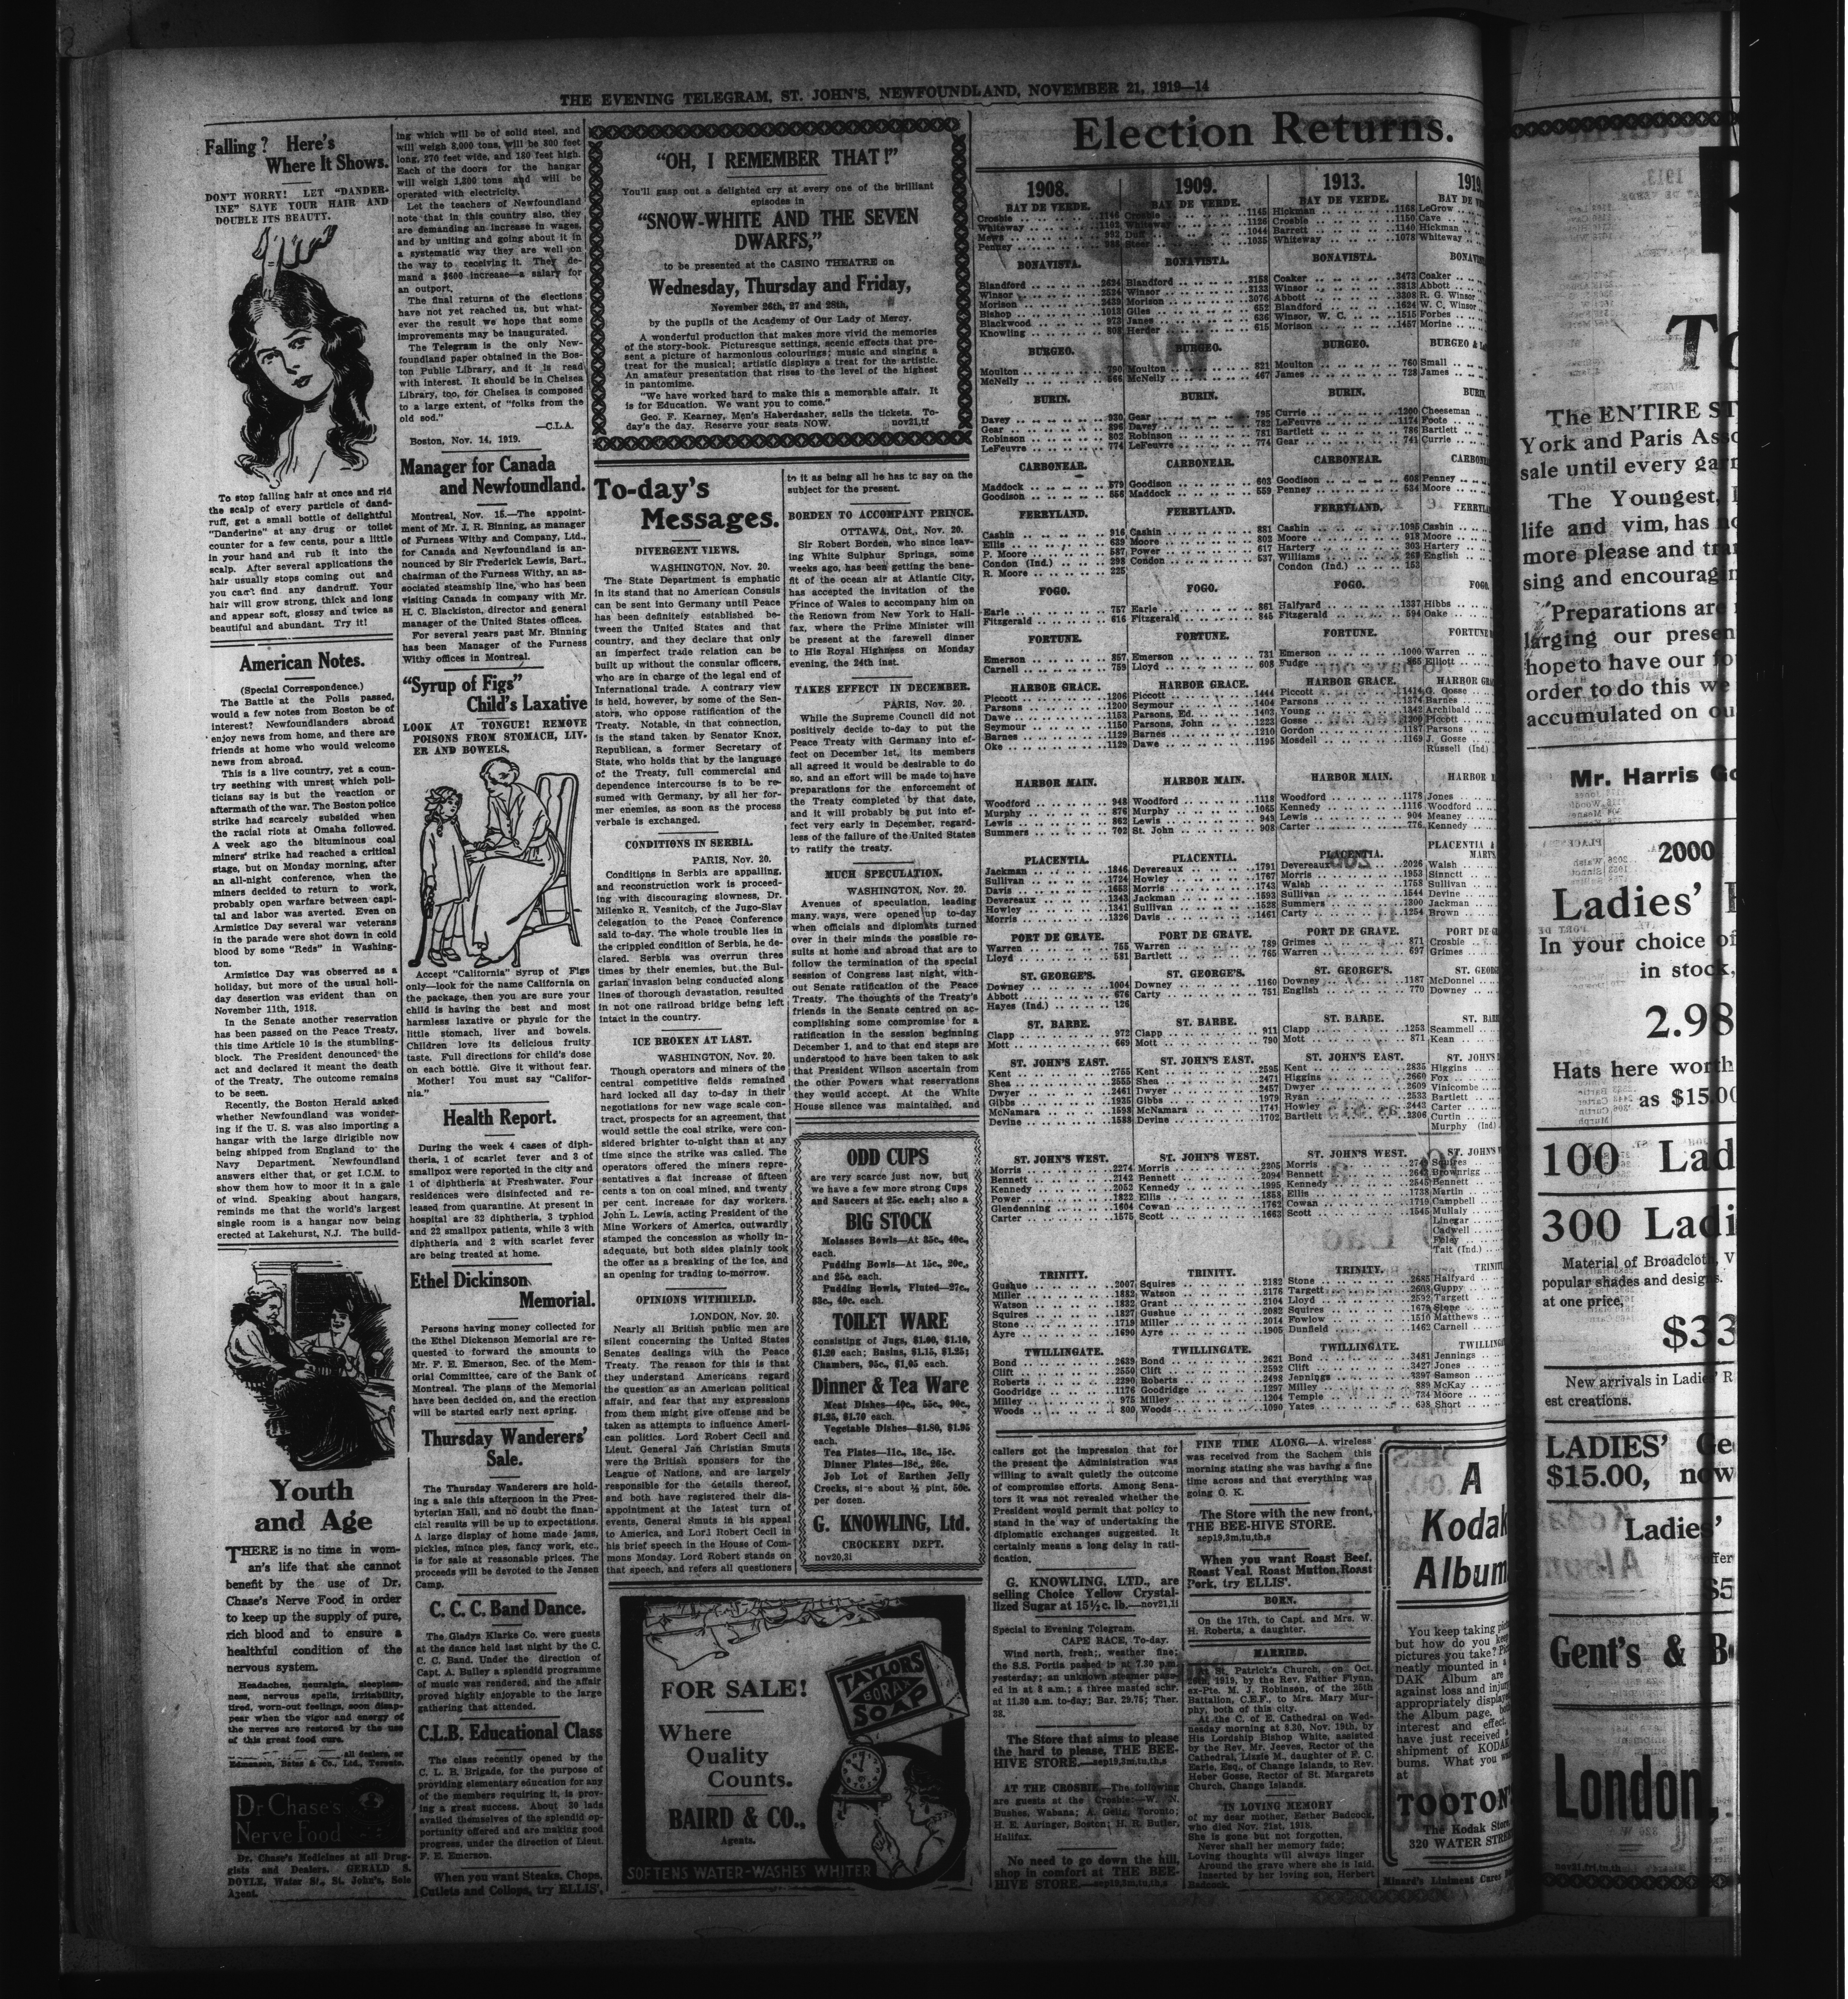 THE EVENING TELEGRAM, ST. JOHN'S, NEWFOUNDLAND, NOVEMBER 21, 1919—14
Falling? Here's
Where It Shows.
DON'T WORRY! LET "DANDER-
INE" SAVE YOUR HAIR AND
DOUBLE ITS BEAUTY.
To stop falling hair at once and rid
the scalp of every particle of dand-
ruff, get a small bottle of delightful
"Danderine" at any drug or toilet
counter for a few cents, pour a little
in your hand and rub it into the
scalp. After several applications the
hair usually stops coming out and
you can't find any dandruff. Your
hair will grow strong, thick and long
and appear soft, glossy and twice as
beautiful and abundant. Try it!
American Notes.
(Special Correspondence.)
The Battle at the Polls passed,
would a few notes from Boston be of
interest? Newfoundlanders abroad
enjoy news from home, and there are
friends at home who would welcome
news from abroad.
This is a live country, yet a coun-
try seething with unrest which poli-
ticians say is but the reaction or
aftermath of the war. The Boston police
strike had scarcely subsided when
the racial riots at Omaha followed.
A week ago the bituminous coal
miners' strike had reached a critical
stage, but on Monday morning, after
an all-night conference, when the
miners decided to return to work,
probably open warfare between capi-
tal and labor was averted. Even on
Armistice Day several war veterans
in the parade were shot down in cold
blood by some "Reds" in Washing-
ton.
Armistice Day was observed as a
holiday, but more of the usual holi-
day desertion was evident than on
November 11th, 1918.
In the Senate another reservation
has been passed on the Peace Treaty,
this time Article 10 is the stumbling-
block. The President denounced the
act and declared it meant the death
of the Treaty. The outcome remains
to be seen.
Recently, the Boston Herald asked
whether Newfoundland was wonder-
ing if the U. S. was also importing a
hangar with the large dirigible now
being shipped from England to the
Navy Department. Newfoundland
answers either that, or get I.C.M. to
show them how to moor it in a gale
of wind. Speaking about hangars,
reminds me that the world's largest
single room is a hangar now being
erected at Lakehurst, N.J. The build-
Youth
and Age
THERE is no time in wom-
an's life that she cannot
benefit by the use of Dr.
Chase's Nerve Food in order
to keep up the supply of pure,
rich blood and to ensure a
healthful condition of the
nervous system.
Headaches, neuralgia, sleepless-
ness, nervous spells, irritability,
tired, worn-out feelings, soon disap-
pear when the vigor and energy of
the nerves are restored by the use
of this great food cure.
all dealers, or
Edmanson, Bates & Co., Ltd., Toronto.
Dr Chase's
Nerve Food
Dr. Chase's Medicines at all Drug-
gists and Dealers. GERALD S.
DOYLE, Water St., St. John's, Sole
Agent.
ing which will be of solid steel, and
will weigh 8,000 tons, will be 800 feet
long, 270 feet wide, and 180 feet high.
Each of the doors for the hangar
will weigh 1,300 tons and will be
operated with electricity.
Let the teachers of Newfoundland
note that in this country also, they
are demanding an increase in wages,
and by uniting and going about it in
a systematic way they are well on
the way to receiving it. They de-
mand a $600 increase—a salary for
an outport.
The final returns of the elections
have not yet reached us, but what-
ever the result we hope that some
improvements may be inaugurated.
The Telegram is the only New-
foundland paper obtained in the Bos-
ton Public Library, and it is read
with interest. It should be in Chelsea
Library, too, for Chelsea is composed
to a large extent, of "folks from the
old sod."
—C.L.A.
Boston, Nov. 14, 1919.
Manager for Canada
and Newfoundland.
Montreal, Nov. 15.—The appoint-
ment of Mr. J. R. Binning, as manager
of Furness Withy and Company, Ltd.,
for Canada and Newfoundland is an-
nounced by Sir Frederick Lewis, Bart.,
chairman of the Furness Withy, an as-
sociated steamship line, who has been
visiting Canada in company with Mr.
H. C. Blackiston, director and general
manager of the United States offices.
For several years past Mr. Binning
has been Manager of the Furness
Withy offices in Montreal.
"Syrup of Figs"
Child's Laxative
LOOK AT TONGUE! REMOVE
POISONS FROM STOMACH, LIV-
ER AND BOWELS.
Accept "California" Syrup of Figs
only—look for the name California on
the package, then you are sure your
child is having the best and most
harmless laxative or physic for the
little stomach, liver and bowels.
Children love its delicious fruity
taste. Full directions for child's dose
on each bottle. Give it without fear.
Mother! You must say "Califor-
nia."
Health Report.
During the week 4 cases of diph-
theria, 1 of scarlet fever and 3 of
smallpox were reported in the city and
1 of diphtheria at Freshwater. Four
residences were disinfected and re-
leased from quarantine. At present in
hospital are 32 diphtheria, 3 typhiod
and 22 smallpox patients, while 3 with
diphtheria and 2 with scarlet fever
are being treated at home.
Ethel Dickinson
Memorial.
Persons having money collected for
the Ethel Dickenson Memorial are re-
quested to forward the amounts to
Mr. F. E. Emerson, Sec. of the Mem-
orial Committee, care of the Bank of
Montreal. The plans of the Memorial
have been decided on, and the erection
will be started early next spring.
Thursday Wanderers'
Sale.
The Thursday Wanderers are hold-
ing a sale this afternoon in the Pres-
byterian Hall, and no doubt the finan-
cial results will be up to expectations.
A large display of home made jams,
pickles, mince pies, fancy work, etc.,
is for sale at reasonable prices. The
proceeds will be devoted to the Jensen
Camp.
C. C. C. Band Dance.
The Gladys Klarke Co. were guests
at the dance held last night by the C.
C. C. Band. Under the direction of
Capt. A. Bulley a splendid programme
of music was rendered, and the affair
proved highly enjoyable to the large
gathering that attended.
C.L.B. Educational Class
The class recently opened by the
C. L. B. Brigade, for the purpose of
providing elementary education for any
of the members requiring it, is prov-
ing a great success. About 30 lads
availed themselves of the splendid op-
portunity offered and are making good
progress, under the direction of Lieut.
F. E. Emerson.
When you want Steaks, Chops,
Cutlets and Collops, try ELLIS'.
"OH, I REMEMBER THAT!"
You'll gasp out a delighted cry at every one of the brilliant
episodes in
"SNOW-WHITE AND THE SEVEN
DWARFS,"
to be presented at the CASINO THEATRE on
Wednesday, Thursday and Friday,
November 26th, 27 and 28th,
by the pupils of the Academy of Our Lady of Mercy.
A wonderful production that makes more vivid the memories
of the story-book. Picturesque settings, scenic effects that pre-
sent a picture of harmonious colourings; music and singing a
treat for the musical; artistic displays a treat for the artistic.
An amateur presentation that rises to the level of the highest
in pantomime.
"We have worked hard to make this a memorable affair. It
is for Education. We want you to come."
Geo. F. Kearney, Men's Haberdasher, sells the tickets. To-
day's the day. Reserve your seats NOW. nov21,tf
To-day's
Messages.
DIVERGENT VIEWS.
WASHINGTON, Nov. 20.
The State Department is emphatic
in its stand that no American Consuls
can be sent into Germany until Peace
has been definitely established be-
tween the United States and that
country, and they declare that only
an imperfect trade relation can be
built up without the consular officers,
who are in charge of the legal end of
International trade. A contrary view
is held, however, by some of the Sen-
ators, who oppose ratification of the
Treaty. Notable, in that connection,
is the stand taken by Senator Knox,
Republican, a former Secretary of
State, who holds that by the language
of the Treaty, full commercial and
dependence intercourse is to be re-
sumed with Germany, by all her for-
mer enemies, as soon as the process
verbale is exchanged.
CONDITIONS IN SERBIA.
PARIS, Nov. 20.
Conditions in Serbia are appalling,
and reconstruction work is proceed-
ing with discouraging slowness, Dr.
Milenko R. Vesnitch, of the Jugo-Slav
delegation to the Peace Conference
said to-day. The whole trouble lies in
the crippled condition of Serbia, he de-
clared. Serbia was overrun three
times by their enemies, but the Bul-
garian invasion being conducted along
lines of thorough devastation, resulted
in not one railroad bridge being left
intact in the country.
ICE BROKEN AT LAST.
WASHINGTON, Nov. 20.
Though operators and miners of the
central competitive fields remained
hard locked all day to-day in their
negotiations for new wage scale con-
tract, prospects for an agreement, that
would settle the coal strike, were con-
sidered brighter to-night than at any
time since the strike was called. The
operators offered the miners repre-
sentatives a flat increase of fifteen
cents a ton on coal mined, and twenty
per cent. increase for day workers.
John L. Lewis, acting President of the
Mine Workers of America, outwardly
stamped the concession as wholly in-
adequate, but both sides plainly took
the offer as a breaking of the ice, and
an opening for trading to-morrow.
OPINIONS WITHHELD.
LONDON, Nov. 20.
Nearly all British public men are
silent concerning the United States
Senates dealings with the Peace
Treaty. The reason for this is that
they understand Americans regard
the question as an American political
affair, and fear that any expressions
from them might give offense and be
taken as attempts to influence Ameri-
can politics. Lord Robert Cecil and
Lieut. General Jan Christian Smuts
were the British sponsers for the
League of Nations, and are largely
responsible for the details thereof,
and both have registered their dis-
appointment at the latest turn of
events, General Smuts in his appeal
to America, and Lord Robert Cecil in
his brief speech in the House of Com-
mons Monday. Lord Robert stands on
that speech, and refers all questioners
to it as being all he has to say on the
subject for the present.
BORDEN TO ACCOMPANY PRINCE.
OTTAWA, Ont., Nov. 20.
Sir Robert Borden, who since leav-
ing White Sulphur Springs, some
weeks ago, has been getting the bene-
fit of the ocean air at Atlantic City,
has accepted the invitation of the
Prince of Wales to accompany him on
the Renown from New York to Hali-
fax, where the Prime Minister will
be present at the farewell dinner
to His Royal Highness on Monday
evening, the 24th inst.
TAKES EFFECT IN DECEMBER.
PARIS, Nov. 20.
While the Supreme Council did not
positively decide to-day to put the
Peace Treaty with Germany into ef-
fect on December 1st, its members
all agreed it would be desirable to do
so, and an effort will be made to have
preparations for the enforcement of
the Treaty completed by that date,
and it will probably be put into ef-
fect very early in December, regard-
less of the failure of the United States
to ratify the treaty.
MUCH SPECULATION.
WASHINGTON, Nov. 20.
Avenues of speculation, leading
many ways, were opened up to-day
when officials and diplomats turned
over in their minds the possible re-
sults at home and abroad that are to
follow the termination of the special
session of Congress last night, with-
out Senate ratification of the Peace
Treaty. The thoughts of the Treaty's
friends in the Senate centred on ac-
complishing some compromise for a
ratification in the session beginning
December 1, and to that end steps are
understood to have been taken to ask
that President Wilson ascertain from
the other Powers what reservations
they would accept. At the White
House silence was maintained, and
ODD CUPS
are very scarce just now, but
we have a few more strong Cups
and Saucers at 25c. each; also a
BIG STOCK
Molasses Bowls—At 35c., 40c.,
each.
Pudding Bowls—At 15c., 20c.,
and 25c. each.
Pudding Bowls, Fluted—27c.,
33c., 40c. each.
TOILET WARE
consisting of Jugs, $1.00, $1.10,
$1.20 each; Basins, $1.15, $1.25;
Chambers, 95c., $1.05 each.
Dinner & Tea Ware
Meat Dishes—40c., 55c., 90c.,
$1.25, $1.70 each.
Vegetable Dishes—$1.80, $1.95
each.
Tea Plates—11c., 13c., 15c.
Dinner Plates—18c., 26c.
Job Lot of Earthen Jelly
Crocks, size about ½ pint, 50c.
per dozen.
G. KNOWLING, Ltd.
CROCKERY DEPT.
nov20,3i
FOR SALE!
TAYLORS
BORAX
SOAP
Where
Quality
Counts.
BAIRD & CO.,
Agents.
SOFTENS WATER-WASHES WHITER
Election Returns.
1908.
BAY DE VERDE.
Crosbie 1146
Whiteway 1103
Mews 992
Penney
BONAVISTA.
Blandford 2624
Winsor 2524
Morison 2439
Bishop 1012
Blackwood 973
Knowling 808
BURGEO.
Moulton 790
McNeily 566
BURIN.
Davey 930
Gear 896
Robinson 802
LeFeuvre 774
CARBONEAR.
Maddock 579
Goodison 556
FERRYLAND.
Cashin 916
Ellis 639
P. Moore 587
Condon (Ind.) 298
R. Moore 225
FOGO.
Earle 757
Fitzgerald 616
FORTUNE.
Emerson 857
Carnell 759
HARBOR GRACE.
Piccott 1206
Parsons 1200
Dawe 1153
Seymour 1150
Barnes 1129
Oke 1129
HARBOR MAIN.
Woodford 948
Murphy 876
Lewis 862
Summers 702
PLACENTIA.
Jackman 1846
Sullivan 1724
Davis 1653
Devereaux 1343
Howley 1341
Morris 1326
PORT DE GRAVE.
Warren 755
Lloyd 581
ST. GEORGE'S.
Downey 1004
Abbott 676
Hayes (Ind.) 126
ST. BARBE.
Clapp 972
Mott 669
ST. JOHN'S EAST.
Kent 2755
Shea 2555
Dwyer 2461
Gibbs 1935
McNamara 1598
Devine 1588
ST. JOHN'S WEST.
Morris 2274
Bennett 2142
Kennedy 2052
Power 1822
Glendenning 1604
Carter 1575
TRINITY.
Gushue 2007
Miller 1882
Watson 1832
Squires 1827
Stone 1719
Ayre 1690
TWILLINGATE.
Bond 2639
Clift 2550
Roberts 2290
Goodridge 1176
Milley 975
Woods 809
1909.
BAY DE VERDE.
Crosbie 1145
Whiteway 1126
Duff 1044
Steer 1035
BONAVISTA.
Blandford 3158
Winsor 3133
Morison 3076
Giles 652
Janes 636
Herder 615
BURGEO.
Moulton 821
McNeily 467
BURIN.
Gear 795
Davey 782
Robinson 781
LeFeuvre 774
CARBONEAR.
Goodison 603
Maddock 559
FERRYLAND.
Cashin 881
Moore 802
Power 617
Condon 537
FOGO.
Earle 861
Fitzgerald 845
FORTUNE.
Emerson 731
Lloyd 608
HARBOR GRACE.
Piccott 1444
Seymour 1404
Parsons, Ed. 1403
Parsons, John 1223
Barnes 1210
Dawe 1195
HARBOR MAIN.
Woodford 1118
Murphy 1065
Lewis 949
St. John 908
PLACENTIA.
Devereaux 1791
Howley 1767
Morris 1743
Jackman 1593
Sullivan 1528
Davis 1461
PORT DE GRAVE.
Warren 789
Bartlett 765
ST. GEORGE'S.
Downey 1160
Carty 751
ST. BARBE.
Clapp 911
Mott 790
ST. JOHN'S EAST.
Kent 2595
Shea 2471
Dwyer 2457
Gibbs 1979
McNamara 1741
Devine 1702
ST. JOHN'S WEST.
Morris 2205
Bennett 2094
Kennedy 1995
Ellis 1858
Cowan 1762
Scott 1663
TRINITY.
Squires 2182
Watson 2176
Grant 2104
Gushue 2082
Miller 2014
Ayre 1905
TWILLINGATE.
Bond 2621
Clift 2592
Roberts 2498
Goodridge 1297
Milley 1204
Woods 1090
1913.
BAY DE VERDE.
Hickman 1168
Crosbie 1150
Barrett 1140
Whiteway 1078
BONAVISTA.
Coaker 3473
Winsor 3313
Abbott 3308
Blandford 1624
Winsor, W. C. 1515
Morison 1457
BURGEO.
Moulton 760
James 728
BURIN.
Currie 1200
LeFeuvre 1174
Bartlett 786
Gear 741
CARBONEAR.
Goodison 608
Penney 534
FERRYLAND.
Cashin 1095
Moore 918
Hartery 303
Williams 269
Condon (Ind.) 153
FOGO.
Halfyard 1337
Fitzgerald 594
FORTUNE.
Emerson 1000
Fudge 865
HARBOR GRACE.
Piccott 1414
Parsons 1374
Young 1342
Gosse 1200
Gordon 1187
Mosdell 1169
HARBOR MAIN.
Woodford 1178
Kennedy 1116
Lewis 904
Carter 776
PLACENTIA.
Devereaux 2026
Morris 1953
Walsh 1758
Sullivan 1544
Summers 1300
Carty 1254
PORT DE GRAVE.
Grimes 871
Warren 697
ST. GEORGE'S.
Downey 1187
English 770
ST. BARBE.
Clapp 1253
Mott 871
ST. JOHN'S EAST.
Kent 2835
Higgins 2660
Dwyer 2609
Ryan 2533
Howley 2443
Bartlett 2306
ST. JOHN'S WEST.
Morris
Bennett
Kennedy 2545
Ellis 1738
Cowan 1719
Scott 1545
TRINITY.
Stone 2685
Targett 2608
Lloyd 2592
Squires 1679
Fowlow 1510
Dunfield 1462
TWILLINGATE.
Bond 3481
Clift 3427
Jennings 3397
Milley 889
Temple 734
Yates 638
1919.
BAY DE
LeGrow
Cave
Hickman
Whiteway
Coaker
Abbott
R. G. Winsor
W. C. Winsor
Forbes
Morine
BURGEO &
Small
James
BURIN
Cheeseman
Foote
Bartlett
Currie
Penney
Moore
Cashin
Moore
Hartery
English
FOGO.
Hibbs
Oake
FORTUNE
Warren
Elliott
G. Gosse
Barnes
Archibald
Piccott
Parsons
J. Gosse
Russell (Ind)
HARBOR
Jones
Woodford
Meaney
Kennedy
PLACENTIA &
Walsh
Sinnott
Sullivan
Devine
Jackman
Brown
Crosbie
Grimes
McDonnel
Downey
Scammell
Kean
ST. JOHN'S
Higgins
Fox
Vinicombe
Bartlett
Carter
Curtin
Murphy (Ind)
ST. JOHN'S
Squires
Brownrigg
Bennett
Martin
Campbell
Mullaly
Linegar
Cadwell
Foley
Tait (Ind.)
Halfyard
Guppy
Targett
Stone
Matthews
Carnell
Jennings
Jones
Samson
McKay
Moore
Short
callers got the impression that for
the present the Administration was
willing to await quietly the outcome
of compromise efforts. Among Sena-
tors it was not revealed whether the
President would permit that policy to
stand in the way of undertaking the
diplomatic exchanges suggested. It
certainly means a long delay in rati-
fication.
G. KNOWLING, LTD., are
selling Choice Yellow Crystal-
lized Sugar at 15½c. lb.—nov21,1i
Special to Evening Telegram.
CAPE RACE, To-day.
Wind north, fresh; weather fine;
the S.S. Portia passed in at 7.30 p.m.
yesterday; an unknown steamer pass-
ed in at 8 a.m.; a three masted schr.
at 11.30 a.m. to-day; Bar. 29.75; Ther.
38.
The Store that aims to please
the hard to please, THE BEE-
HIVE STORE.—sep19,3m,tu,th,s
AT THE CROSBIE.—The following
are guests at the Crosbie:—W. N.
Bushes, Wabana; A. Gelig, Toronto;
H. E. Auringer, Boston; H. R. Butler,
Halifax.
No need to go down the hill,
shop in comfort at THE BEE-
HIVE STORE.—sep19,3m,tu,th,s
FINE TIME ALONG.—A wireless
was received from the Sachem this
morning stating she was having a fine
time across and that everything was
going O. K.
The Store with the new front,
THE BEE-HIVE STORE.
sep19,3m,tu,th,s
When you want Roast Beef,
Roast Veal, Roast Mutton, Roast
Pork, try ELLIS'.
BORN.
On the 17th, to Capt. and Mrs. W.
H. Roberts, a daughter.
MARRIED.
At St. Patrick's Church, on Oct.
25th, 1919, by the Rev. Father Flynn,
ex-Pte. M. J. Robinson, of the 25th
Battalion, C.E.F., to Mrs. Mary Mur-
phy, both of this city.
At the C. of E. Cathedral on Wed-
nesday morning at 8.30, Nov. 19th, by
His Lordship Bishop White, assisted
by the Rev. Mr. Jeeves, Rector of the
Cathedral, Lizzie M., daughter of F. C.
Earle, Esq., of Change Islands, to Rev.
Heber Gosse, Rector of St. Margarets
Church, Change Islands.
IN LOVING MEMORY
of my dear mother, Esther Badcock,
who died Nov. 21st, 1918.
She is gone but not forgotten,
Never shall her memory fade;
Loving thoughts will always linger
Around the grave where she is laid.
Inserted by her loving son, Herbert
Badcock.
A
Kodak
Album
You keep taking
but how do you keep
pictures you take?
neatly mounted in a
DAK Album are
against loss and injury
appropriately
the Album page,
interest and effect.
have just received a
shipment of KODAK
bums. What you
at
TOOTON'
The Kodak Store,
320 WATER
Minard's Liniment Cures
The ENTIRE
York and Paris
sale until every
The Youngest,
life and vim, has
more please and
sing and
Preparations are
larging our
hope to have our
order to do this we
accumulated on
Mr. Harris
2000
Ladies'
In your choice of
in stock,
2.98
Hats here worth
as $15.00
100
300
Material of Broadcloth,
popular shades and designs.
at one price,
$33
New arrivals in Ladies'
est creations.
LADIES'
$15.00, now
Ladies'
Gent's &
London,